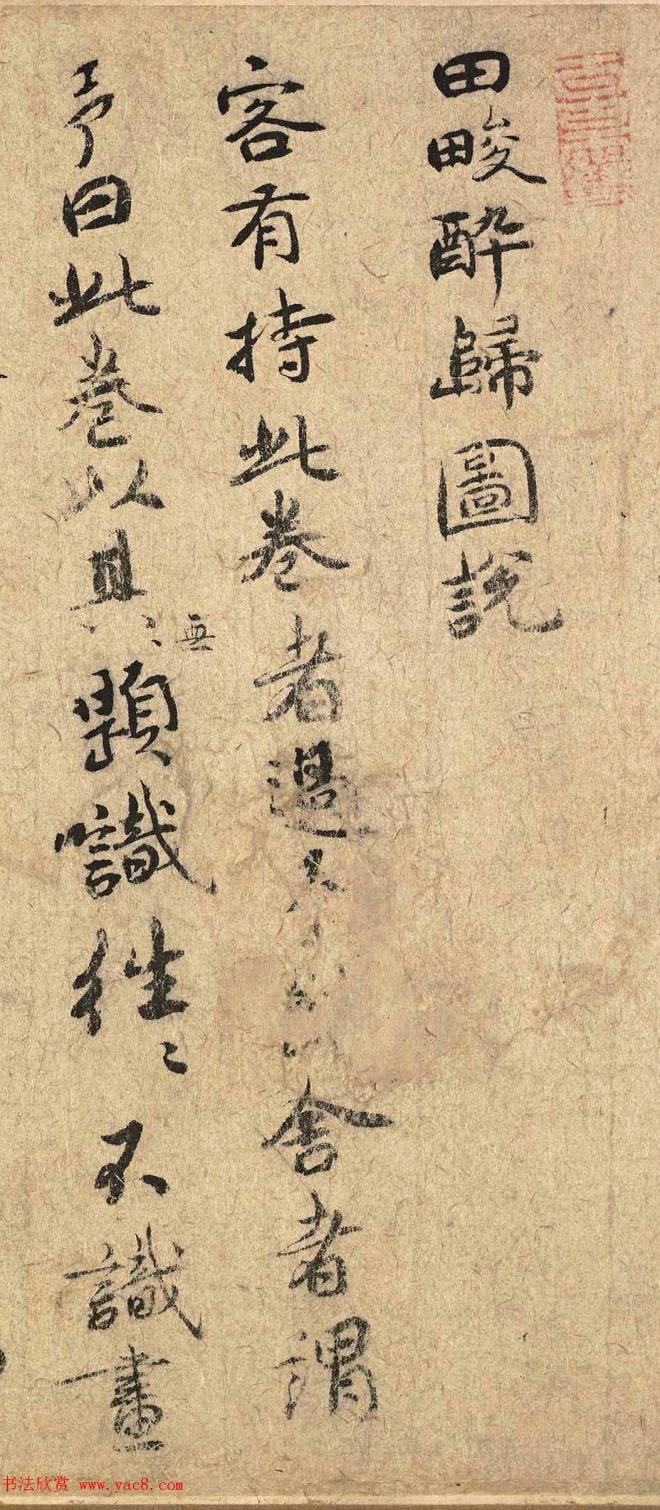 田畯酔歸圖說
客有持此卷者過舍者謂
予曰此卷以其無題識往〻不識畫
书法欣赏 www.yac8.com